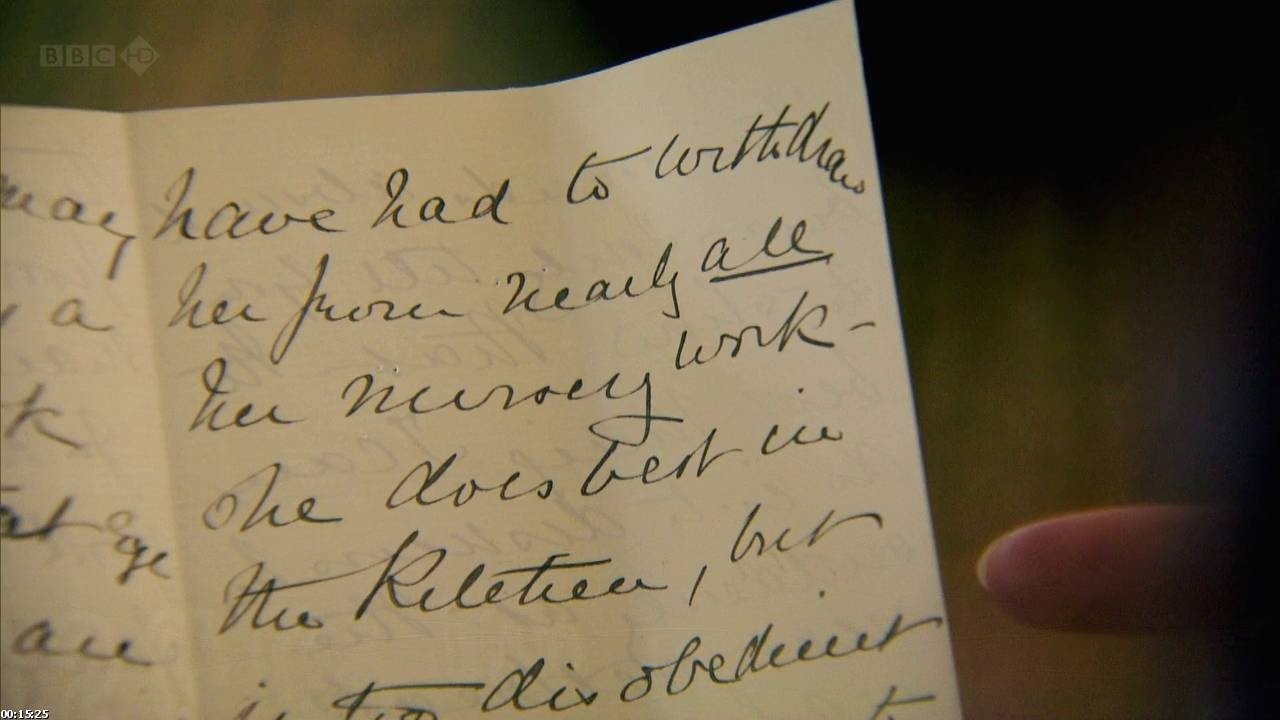 BBC HD
may have had to withdraw
a her from nearly all
k her nursery work -
She does best in
the Kitchen, but
age
an is too disobedient
to
00:15:25